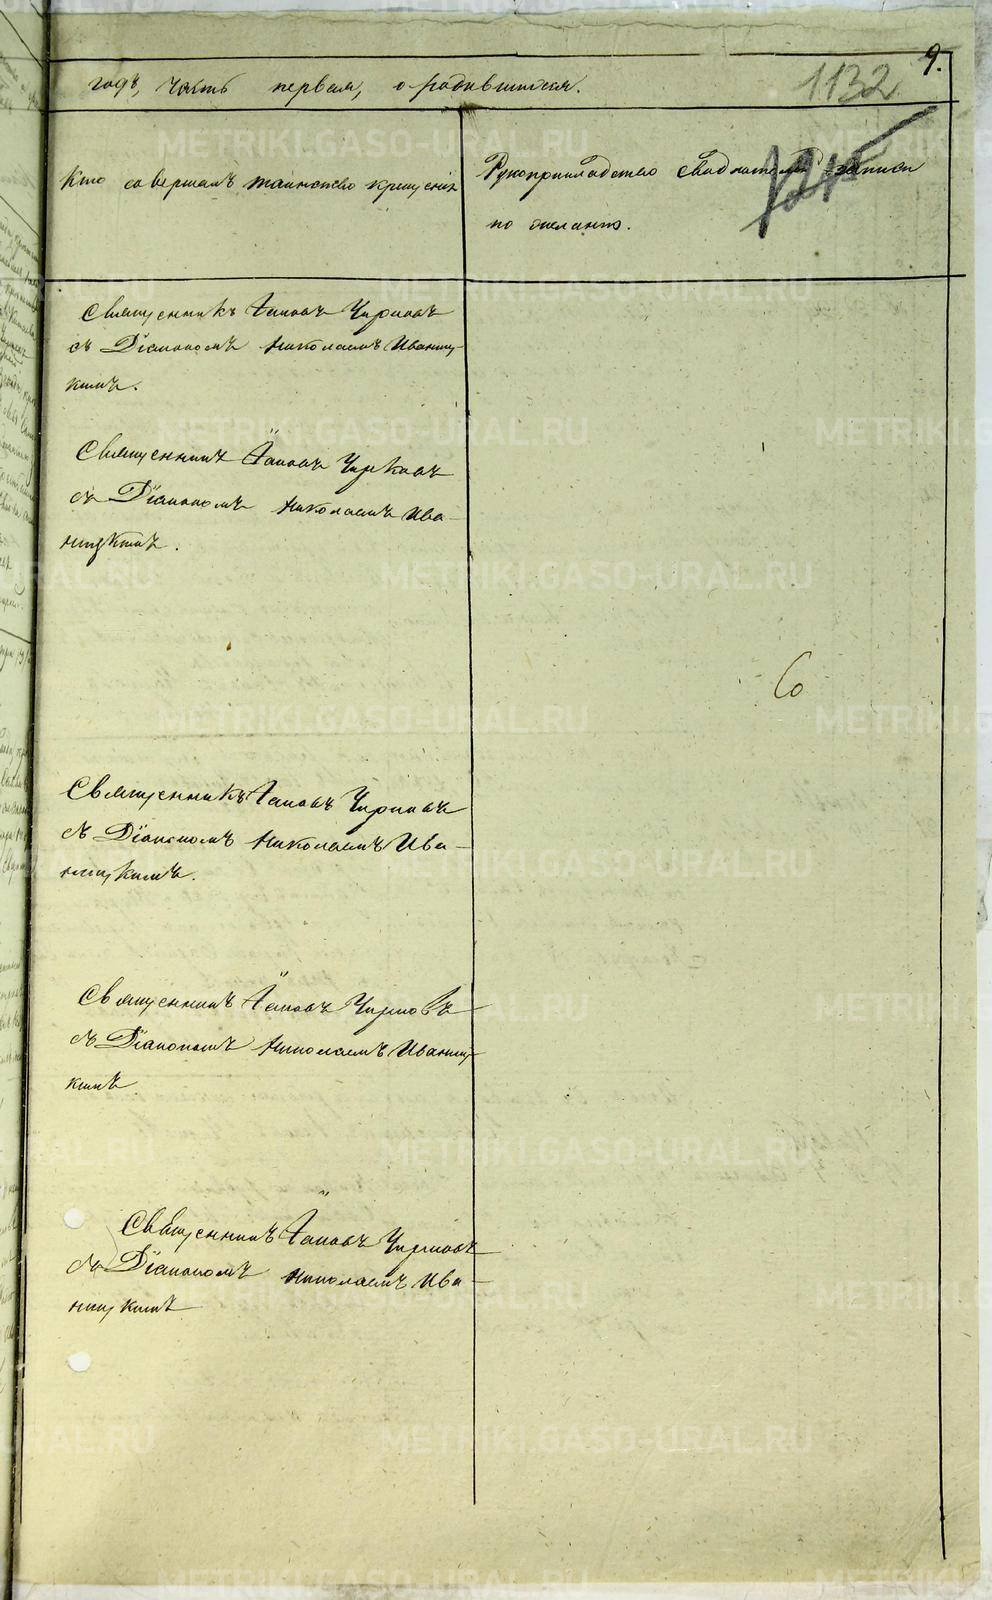 9.
годъ, часть первая, о родившихся.
1132
Кто совершалъ таинство крещенія
Рукоприкладство свидѣтелей записи
по желанію.
Священникъ Іаковъ Чирковъ
съ Діакономъ Николаемъ Иваниц-
кимъ.
Священникъ Іаковъ Чирковъ
съ Діакономъ Николаемъ Ива-
ницкимъ.
Священникъ Іаковъ Чирковъ
съ Діакономъ Николаемъ Ива-
ницкимъ.
Священникъ Іаковъ Чирковъ
съ Діакономъ Николаемъ Иваниц-
кимъ
Священникъ Іаковъ Чирковъ
съ Діакономъ Николаемъ Ива-
ницкимъ
METRIKI.GASO-URAL.RU